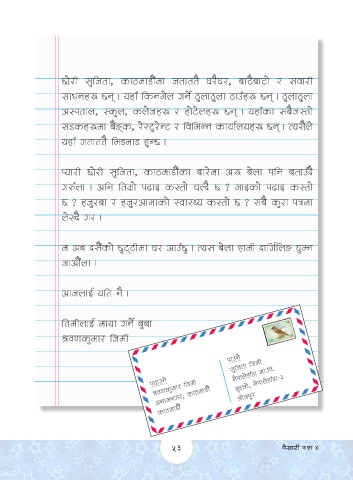 छोरी सुजिता, काठमाडौँमा जताततै घरैघर, बाटैबाटो र सवारी
साधनहरू छन् । यहाँ किनमेल गर्ने ठूलाठूला ठाउँहरू छन् । ठूलाठूला
अस्पताल, स्कुल, कलेजहरू र होटेलहरू छन् । यहाँका सबैजस्तो
सडकहरूमा बैङ्क, रेस्टुरेन्ट र विभिन्न कार्यालयहरू छन् । त्यसैले
यहाँ जताततै भिडभाड हुन्छ ।
प्यारी छोरी सुजिता, काठमाडौँका बारेमा अरू बेला पनि बताउँदै
गरुँला । अनि तिम्रो पढाइ कस्तो चल्दै छ ? भाइको पढाइ कस्तो
छ ? हजुरबा र हजुरआमाको स्वास्थ्य कस्तो छ ? सबै कुरा पत्रमा
लेख्दै गर ।
म अब दसैँको छुट्टीमा घर आउँछु । त्यस बेला हामी दार्जिलिङ घुम्न
जाऔँला ।
आजलाई यति नै ।
तिमीलाई माया गर्ने बुबा
श्रवणकुमार जिमी
पठाउने
श्रवणकुमार जिमी
अनामनगर, काठमाडौँ
काठमाडौँ
पाउने
सुजिता जिमी
भोजपुर
५३
वैखरी कक्षा ४